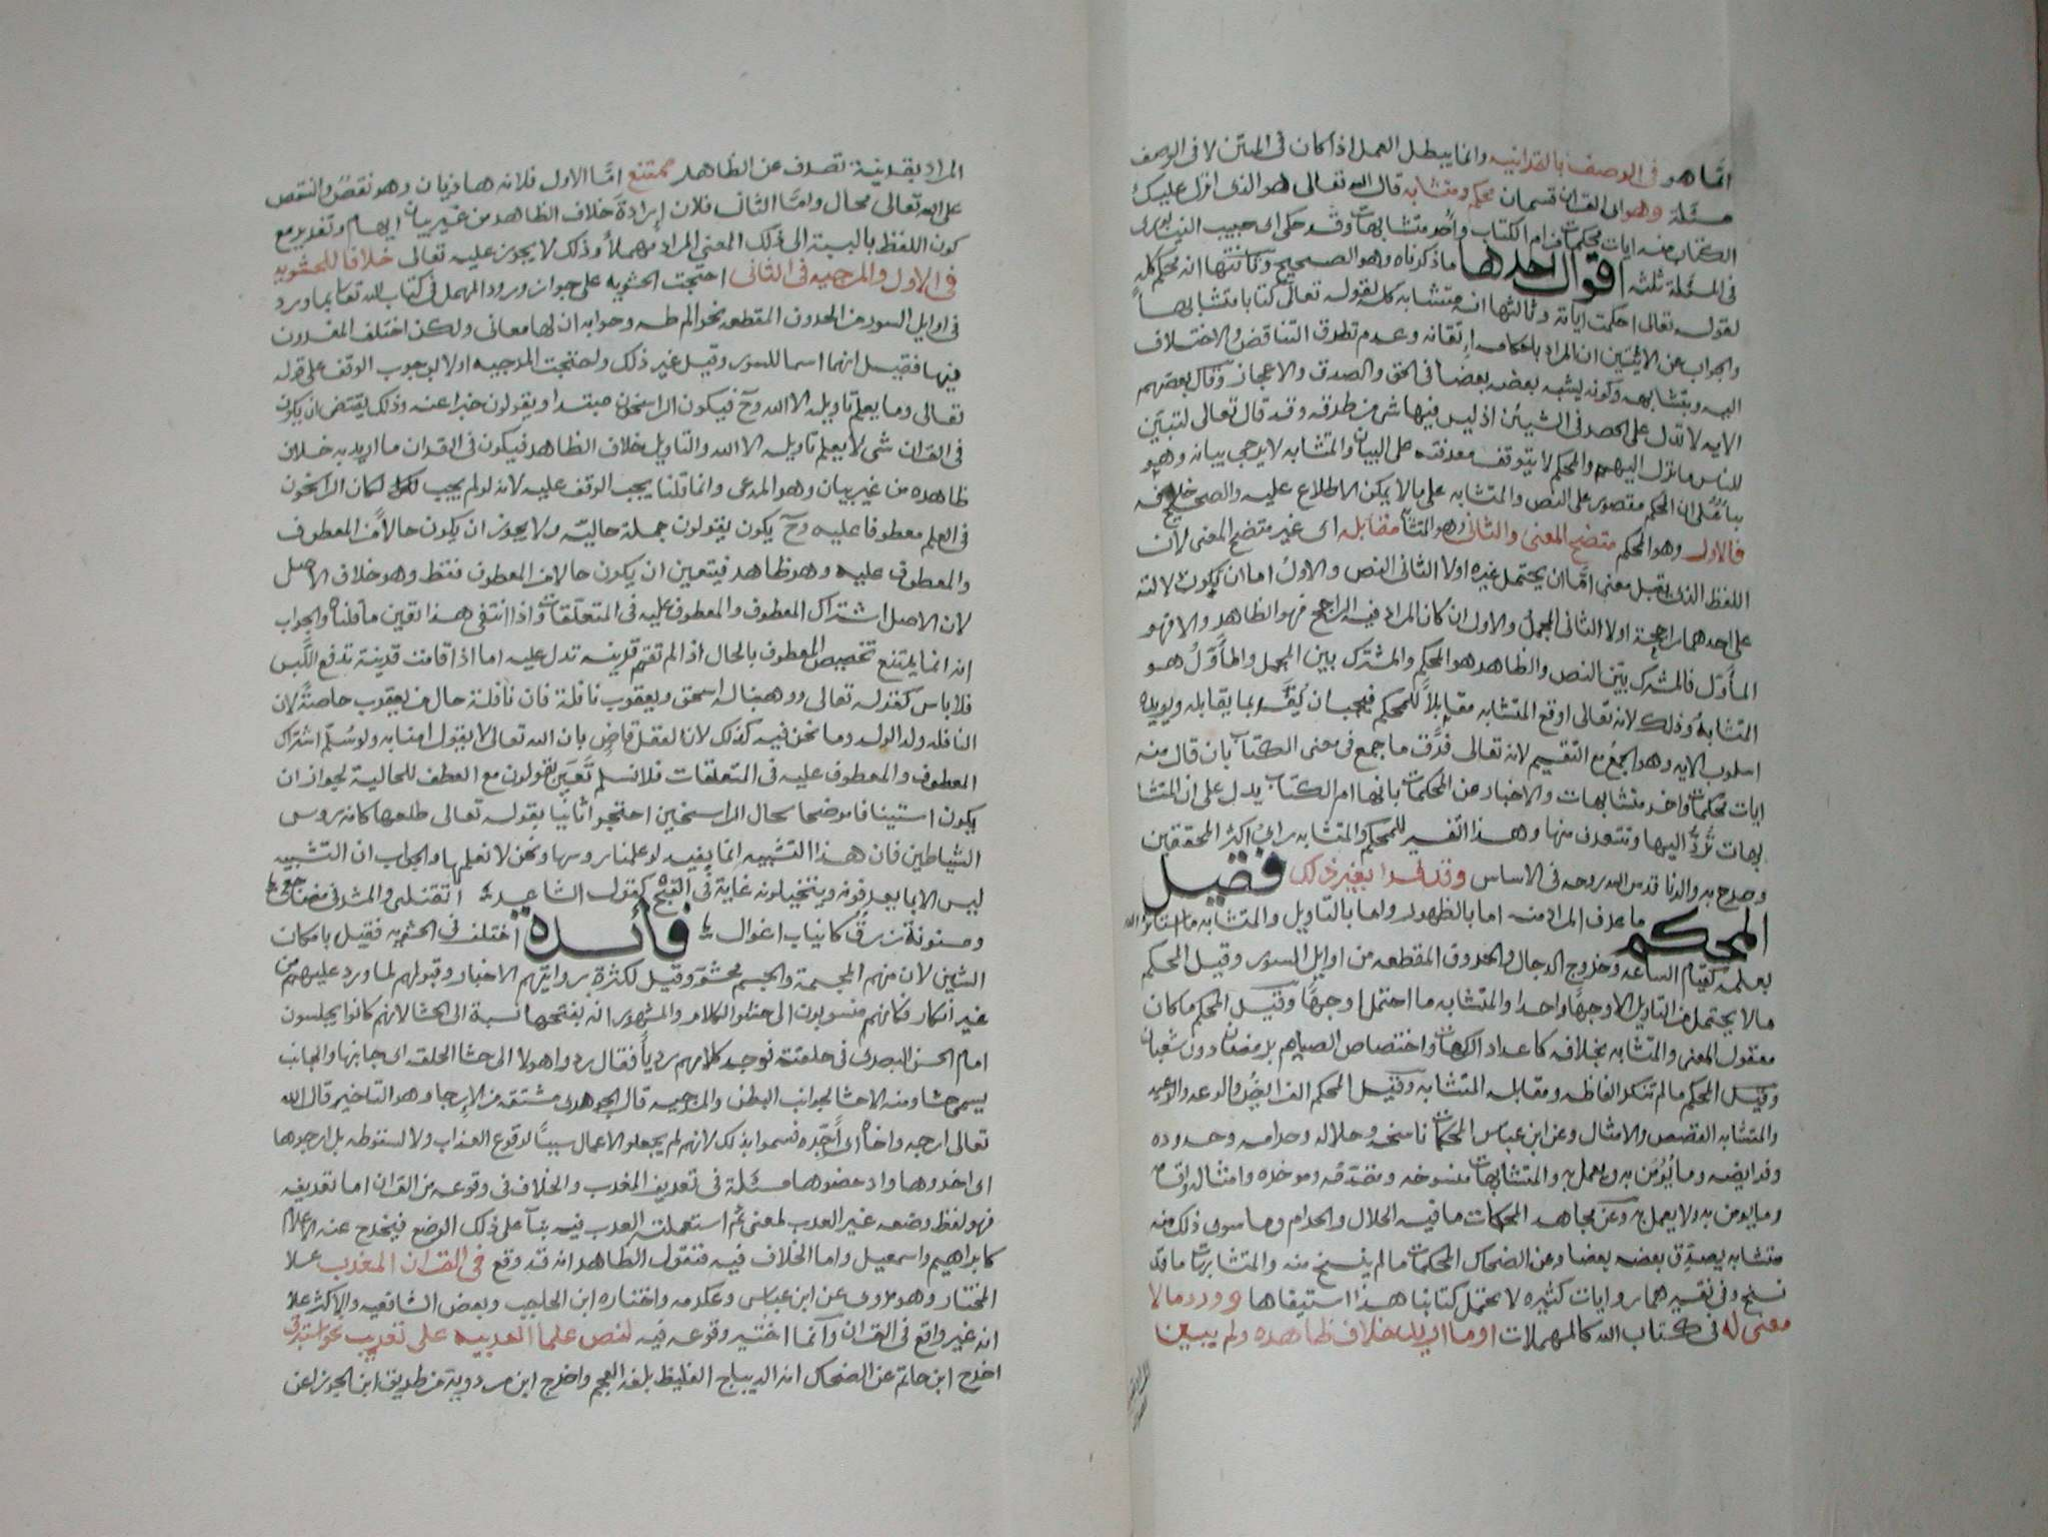 انما هو في الوصف بالقرانيه وانما يبطل العمل اذا كان في المتن لا في الوصف
مسئلة وهو اى القران قسمان محكم ومتشابه قال الله تعالى هو الذى انزل عليك
الكتاب منه ايات محكمات هن ام الكتاب واخر متشابهات وقد حكى ابن حبيب النيسابورى
في المسئلة ثلثة اقوال احدها ما ذكرناه وهو الصحيح وثانيها انه محكم كله
لقوله تعالى احكمت آياته وثالثها انه متشابه كله لقوله تعالى كتابا متشابها
والجواب عن الايتين ان المراد باحكامه اتقانه وعدم تطرق التناقض والاختلاف
اليه وبتشابهه وكونه يشبه بعضه بعضا في الحق والصدق والاعجاز وقال بعضهم
الايه لا تدل على الحصر في الشيئين اذ ليس فيها شى من طرقه وقد قال تعالى لتبين
للناس ما نزل اليهم والمحكم لا يتوقف معرفته على البيان والمتشابه لا يرجى بيانه وهو
بناء على ان المحكم مقصور على النص والمتشابه على ما لا يمكن الاطلاع عليه والصحيح خلافه
فالاول وهو المحكم متضح المعنى والثانى وهو المتشا مقابله اى غير متضح المعنى لان
اللفظ الذى يقبل معنى اما ان يحتمل غيره اولا الثانى النص والاول اما ان يكون دلالته
على احدهما راجحة اولا الثانى المجمل والاول ان كان المراد فيه الراجح فهو الظاهر والا فهو
المأول فالمشترك بين النص والظاهر هو المحكم والمشترك بين المجمل والمأول هو
المتشابه وذلك لانه تعالى اوقع المتشابه مقابلاً للمحكم فيجب ان يفسر بما يقابله ويويده
اسلوب الايه وهو الجمع مع التقسيم لانه تعالى فرق ما جمع في معنى الكتاب بان قال منه
ايات محكمات واخر متشابهات والاخبار عن المحكمات بانها ام الكتاب يدل على ان المتشا
بهات ترد اليها وتتعرف منها وهذا التفسير للمحكم والمتشابه راى اكثر المحققين
وصرح به والدنا قدس الله روحه في الاساس وقد فسرا بغير ذلك فقيل
المحكم ما عرف المراد منه اما بالظهور واما بالتاويل والمتشابه ما استاثر الله
بعلمه كقيام الساعه وخروج الدجال والحروف المقطعه من اوايل السور وقيل المحكم
ما لا يحتمل من التاويل الا وجهاً واحدا والمتشابه ما احتمل اوجهاً وقيل المحكم ما كان
معقول المعنى والمتشابه بخلافه كاعداد الركعات واختصاص الصيام برمضان دون شعبان
وقيل المحكم ما لم تتكرر الفاظه ومقابله المتشابه وقيل المحكم الفرايض والوعد والوعيد
والمتشابه القصص والامثال وعن ابن عباس المحكمات ناسخه وحلاله وحرامه وحدوده
وفرايضه وما يؤمن به ويعمل به والمتشابهات منسوخه ومقدمه وموخره وامثاله واقسامه
وما يومن به ولا يعمل به وعن مجاهد المحكمات ما فيه الحلال والحرام وما سوى ذلك منه
متشابه يصدق بعضه بعضا وعن الضحاك المحكمات ما لم ينسخ منه والمتشابهات ما قد
نسخ وفي تفسيرهما روايات كثيره لا يحتمل كتابنا هذا استيفاها وورد ما لا
معنى له في كتاب الله كالمهملات او ما اريد خلاف ظاهره ولم يبين
المراد بقرينة تصرف عن الظاهر ممتنع امّا الاول فلانه هذيان وهو نقص والنقص
على الله تعالى محال وامّا الثانى فلان إرادة خلاف الظاهر من غير بيان ايهام وتغرير مع
كون اللفظ بالنسبة الى ذلك المعنى المراد مهملاً وذلك لا يجوز عليه تعالى خلافا للحشويه
في الاول والمرجيه في الثانى احتجت الحشويه على جواز ورود المهمل في كتاب الله تعا بما ورد
في اوايل السور من الحروف المقطعه نحو الم طه وجوابه ان لها معانى ولكن اختلف المفسرون
فيها فقيل انها اسما للسور وقيل غير ذلك واحتجت المرجيه اولا بوجوب الوقف على قوله
تعالى وما يعلم تاويله الا الله وح فيكون الراسخون مبتدا ويقولون خبرا عنه وذلك يقتضى ان يكون
في القران شى لا يعلم تاويله الا الله والتاويل خلاف الظاهر فيكون في القران ما اريد به خلاف
ظاهره من غير بيان وهو المدعى وانما قلنا يجب الوقف عليه لانه لو لم يجب لكان الراسخون
في العلم معطوفا عليه وح يكون يقولون جملة حاليّة ولا يجوز ان يكون حالا من المعطوف
والمعطوف عليه وهو ظاهر فيتعين ان يكون حالا من المعطوف فقط وهو خلاف الاصل
لان الاصل اشتراك المعطوف والمعطوف عليه في المتعلقات واذا انتفى هذا تعين ما قلناه والجواب
انه انما يمتنع تخصيص المعطوف بالحال اذا لم تقم قرينه تدل عليه اما اذا قامت قرينة تدفع اللبس
فلا باس كقوله تعالى ووهبنا له اسحق ويعقوب نافلة فان نافلة حال من يعقوب خاصةً لان
النافله ولد الولد وما نحن فيه كذلك لان العقل قاض بان الله تعالى لا يقول امنا به ولو سُلّم اشتراك
المعطوف والمعطوف عليه في المتعلقات فلا نسلم تعين يقولون مع العطف للحالية لجواز ان
يكون استينافا موضحا لحال الراسخين احتجوا ثانيا بقوله تعالى طلعها كانه روس
الشياطين فان هذا التشبيه انما يفيد لو علمنا روسها ونحن لا نعلمها والجواب ان التشبيه
ليس الا بما يعرفونه ويتخيلونه غاية في القبح كقول الشاعر اتقتلنى والمشرفي مضاجعى
ومسنونة زرق كانياب اغوال فائدة اختلف في الحشويه فقيل باسكان
الشين لان منهم المجسمة والجسم محشو وقيل لكثرة روايتهم الاخبار وقبولهم لما ورد عليهم من
غير انكار فكانهم منسوبون الى حشو الكلام والمشهور انه بفتحها نسبة الى الحشا لانهم كانوا يجلسون
امام الحسن البصرى في حلقته فوجد كلامهم ردياً فقال ردوا هولا الى حشا الحلقه اى جانبها والجانب
يسمى حشا ومنه الاحشا لجوانب البطن والمرجيه قال الجوهرى مشتقه من الارجا وهو التاخير قال الله
تعالى ارجه واخاه اى أخّره فسموا بذلك لانهم لم يجعلوا الاعمال سبباً لوقوع العذاب ولا لسقوطه بل ارجوها
اى اخروها وادحضوها مسئلة في تعريف المعرب والخلاف في وقوعه في القران اما تعريفه
فهو لفظ وضعه غير العرب لمعنى ثم استعملته العرب فيه بنآ على ذلك الوضع فيخرج عنه الاعلام
كابراهيم واسمعيل واما الخلاف فيه فنقول الظاهر انه قد وقع في القران المعرب علا
المختار وهو مروى عن ابن عباس وعكرمه واختاره ابن الحاجب وبعض الشافعيه والاكثر علا
انه غير واقع في القران وانما اختير وقوعه فيه لنص علما العربيه على تعريب نحو استبرق
اخرج ابن حاتم عن الضحاك انه الديباج الغليظ بلغه العجم واخرج ابن مردوية من طريق ابن الجوزا عن